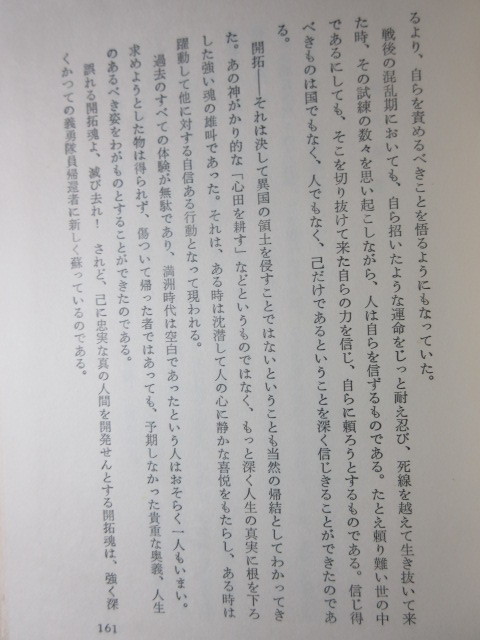 るより、自らを責めるべきことを悟るようにもなっていた。
戦後の混乱期においても、自ら招いたような運命をじっと耐え忍び、死線を越えて生き抜いて来
た時、その試練の数々を思い起こしながら、人は自らを信ずるものである。たとえ頼り難い世の中
であるにしても、そこを切り抜けて来た自らの力を信じ、自らに頼ろうとするものである。信じ得
べきものは国でもなく、人でもなく、己だけであるということを深く信じきることができたのであ
る。
開拓――それは決して異国の領土を侵すことではないということも当然の帰結としてわかってき
た。あの神がかり的な「心田を耕す」などというものではなく、もっと深く人生の真実に根を下ろ
した強い魂の雄叫であった。それは、ある時は沈潜して人の心に静かな喜悦をもたらし、ある時は
躍動して他に対する自信ある行動となって現われる。
過去のすべての体験が無駄であり、満洲時代は空白であったという人はおそらく一人もいまい。
求めようとした物は得られず、傷ついて帰った者ではあっても、予期しなかった貴重な奥義、人生
のあるべき姿をわがものとすることができたのである。
誤れる開拓魂よ、滅び去れ！　されど、己に忠実な真の人間を開発せんとする開拓魂は、強く深
くかつての義勇隊員帰還者に新しく蘇っているのである。
161